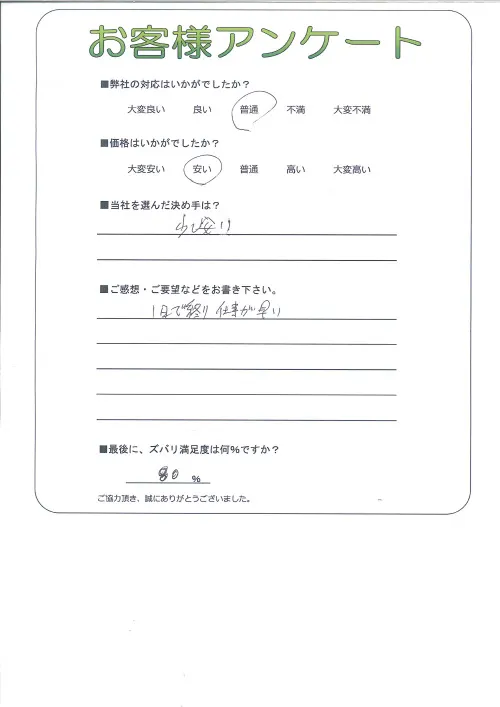 お客様アンケート
■弊社の対応はいかがでしたか？
大変良い 良い 普通 不満 大変不満
■価格はいかがでしたか？
大変安い 安い 普通 高い 大変高い
■当社を選んだ決め手は？
少し安い
■ご感想・ご要望などをお書き下さい。
1日で終り 仕事が早い
■最後に、ズバリ満足度は何％ですか？
80 %
ご協力頂き、誠にありがとうございました。